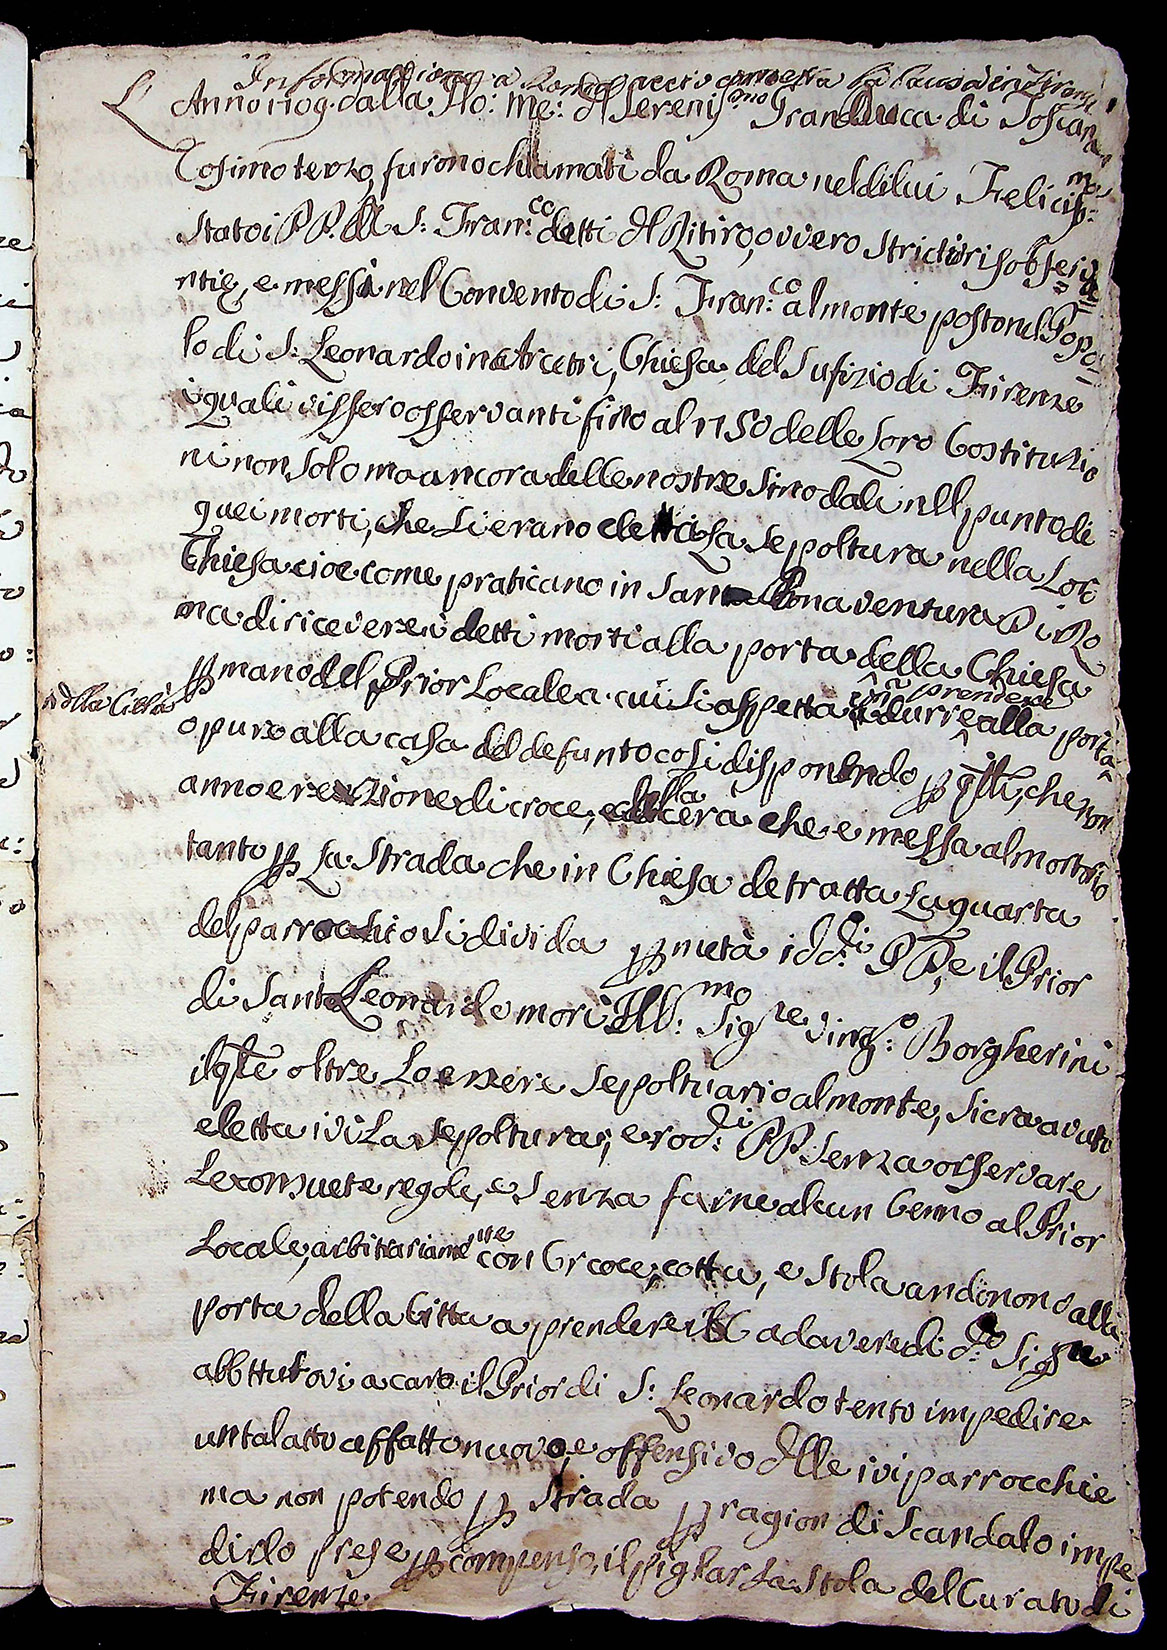 Informazione a Roma
L'Anno 1709. dalla Glo: Me: dl Serenis.mo Gran Duca di Toscana
Cosimo terzo, furono chiamati da Roma nel di lui Felicis:mo
Stato i PP. di S: Fran:co detti dl Ritiro, ovvero strictioris observa
ntie, e messi nel Convento di S: Fran:co al monte posto nel Popo
lo di S: Leonardo in Arcetri, Chiesa del Sufizio di Firenze
i quali vissero osservanti fino al 1750 delle Loro Costituzio
ni non solo ma ancora delle nostre Sinodali nel punto di
quei morti, che si erano eletti La Sepoltura nella Loro
Chiesa cioe come praticano in Santa Bonaventura di Ro
ma di ricevere i detti morti alla porta della Chiesa
p mano del Prior Locale a cui si aspetta prendere alla porta
della Città
o pure alla casa del defunto cosi disponendo p che non
anno erezzione di croce, e della cera che e messa al mortorio
tanto p La Strada che in Chiesa detratta La quarta
del parrochio si divida p metà i dd:i PP, e il Prior
di Santo Leonardo mori Ill:mo Sig.re Vinz:o Borgherini
il qle oltre Lo essere Sepoltuario al monte, si era avuta
eletta ivi La Sepoltura, e d:i PP senza osservare
Le consuete regole, e senza farne alcun Cenno al Prior
Locale, arbitrariamente con Croce, cotta, e Stola andonono alla
porta della Citta a prendere il Cadavere di d:o Sig.re
abbttutovi a caro il Prior di S: Leonardo tento impedire
un tal atto affatto nuovo, e offensivo dlle ivi parrocchie
ma non potendo p Strada p ragion di Scandalo impe
dirlo prese p compenso, il pigliar La Stola del Curato di
Firenze.